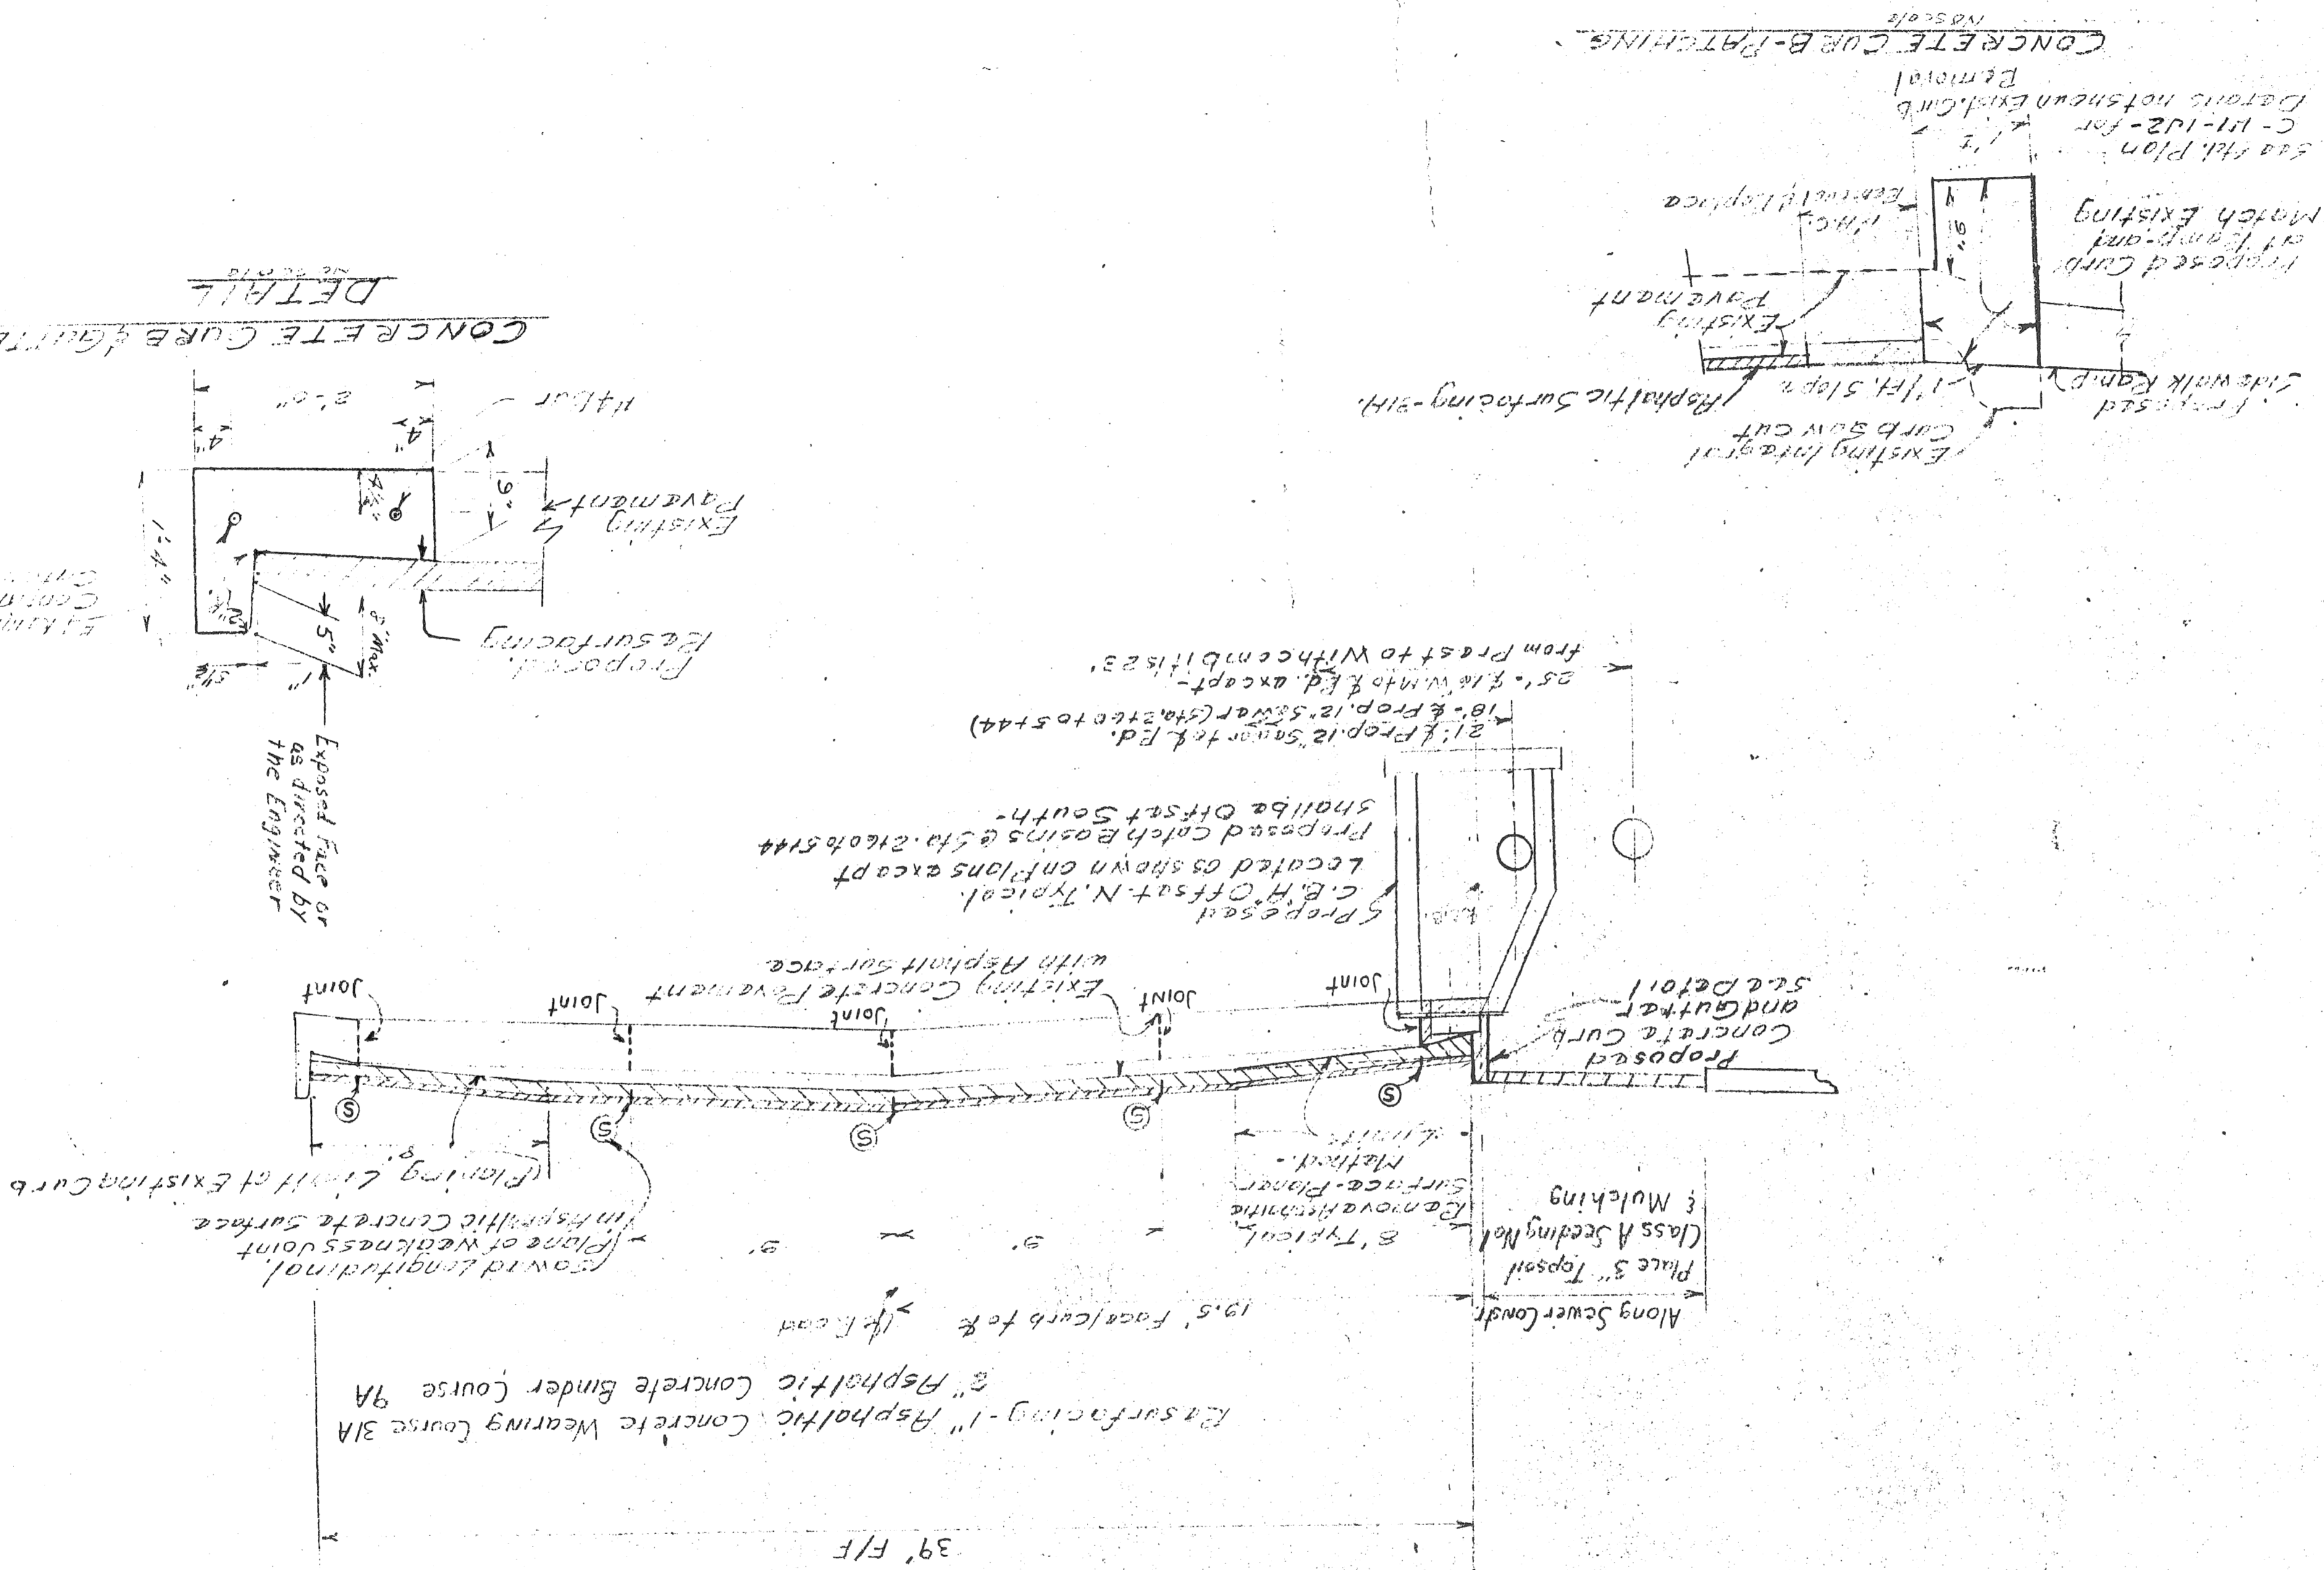 39' F/F
Resurfacing - 1" Asphaltic Concrete Wearing Course 31A
2" Asphaltic Concrete Binder Course 9A
19.5' Face/curb to ℄
℄ Road
Along Sewer Constr.
Place 3" Topsoil
Class A Seeding No1
& Mulching
8' Typical
Remove Asphaltic
Surface-Planer
Method -
Limits
9'
9'
Sawed Longitudinal
(Plane of weakness Joint
in Asphaltic Concrete Surface
Planing Limit at Existing Curb
8'
S
S
S
S
S
Proposed
Concrete Curb
and Gutter
See Detail
Joint
Joint
Joint
Joint
Joint
Existing Concrete Pavement
with Asphalt Surface
Proposed
C.B. "A" Offset N. Typical.
Located as shown on Plans except
Proposed Catch Basins @ Sta. 2+60 to 5+44
shall be Offset South -
21' ℄ Prop. 12" Sewer to ℄ Rd.
18' - ℄ Prop. 12" Sewer (Sta. 2+60 to 5+44)
25' - ℄ 16" W.M. to ℄ Rd. except -
from Prest to Withcomb it is 23'
Exposed Face or
as directed by
the Engineer
Proposed
Resurfacing
5 1/2"
1"
8" Max.
5"
2"R.
1'-4"
Existing
Pavement
9"
4"
4"
#4 bar
2'-0"
CONCRETE CURB & GUTTE
DETAIL
No Scale
Existing Integral
Curb Saw Cut
Proposed
Sidewalk Ramp
1"/Ft. Slope
Asphaltic Surfacing - 31A.
Existing
Pavement
Proposed Curb
at Ramp and
Match Existing
9"
Removal & Replace
See Std. Plan
for
Details not shown
Exist. Curb
Removal
CONCRETE CURB-PATCHING
No scale